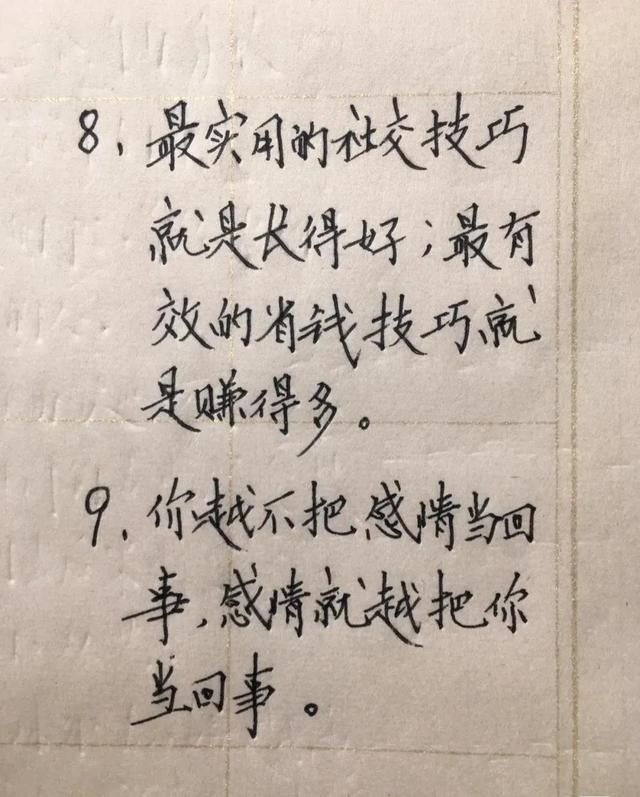 8、最实用的社交技巧
就是长得好；最有
效的省钱技巧就
是赚得多。
9、你越不把感情当回
事，感情就越把你
当回事。